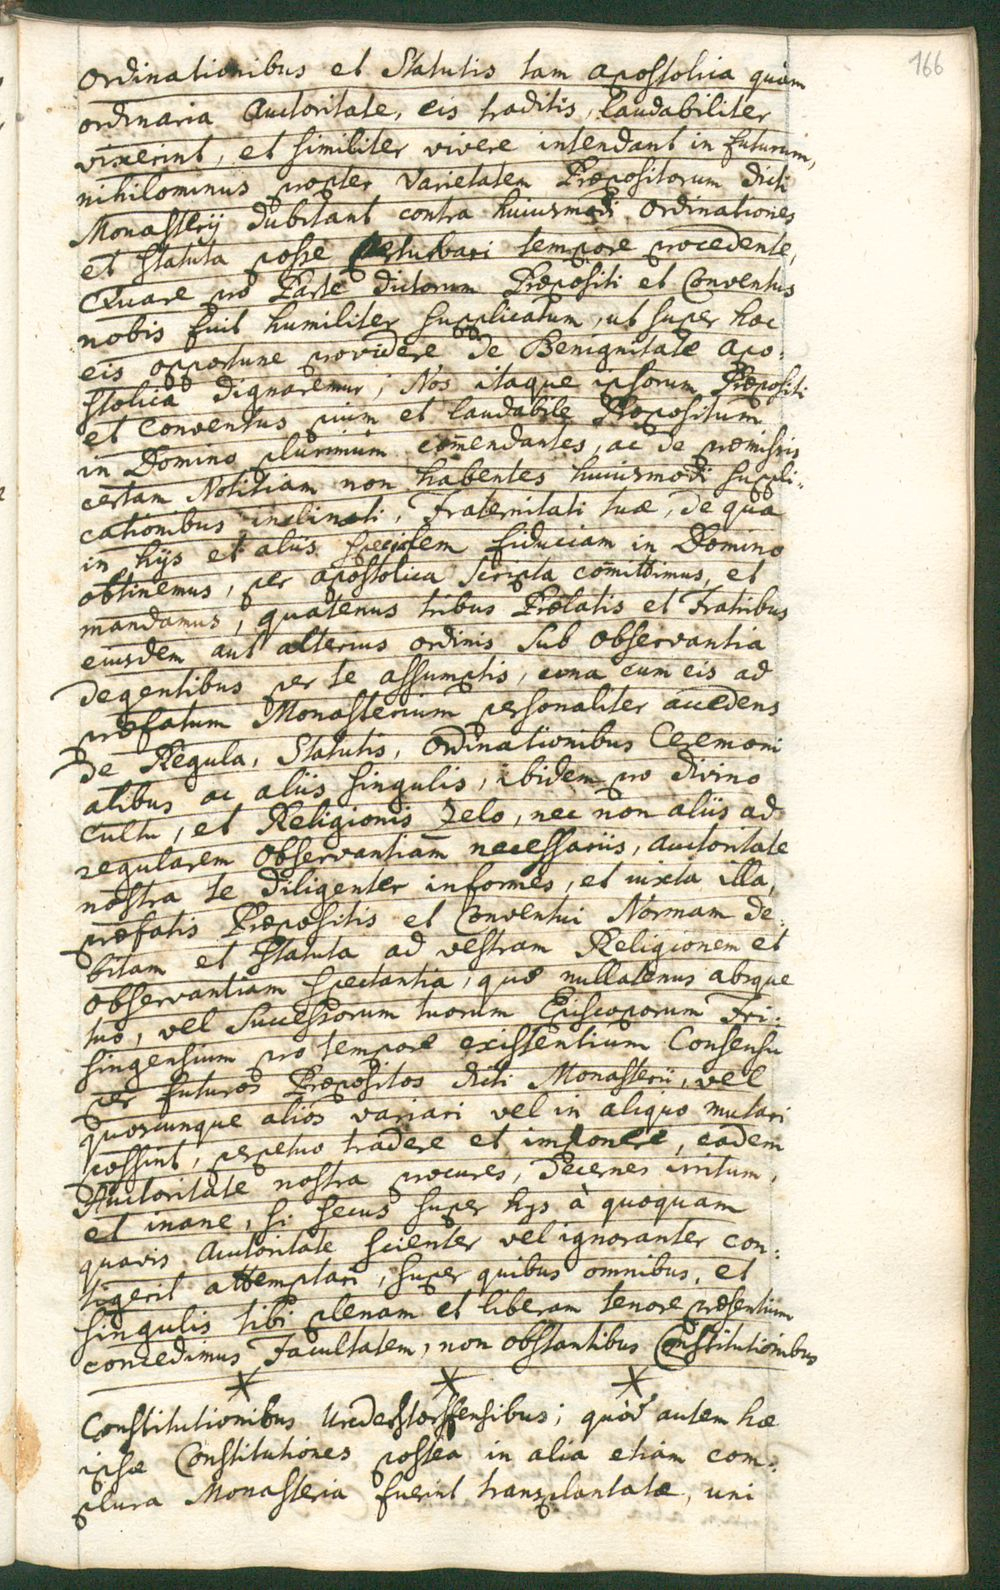 166
ordinationibus et Statutis tam apostolica quàm
ordinaria Auctoritate, eis traditis, laudabiliter
vixerint, et similiter vivere intendant in futurum,
nihilominus propter Varietatem Præpositorum dicti
Monasterij dubitant contra huiusmodi ordinationes
et statuta posse perturbari tempore procedente,
Quare pro Parte dictorum Præpositi et Conventus
nobis fuit humiliter supplicatum, ut super hoc
eis opportune providere de Benignitate apo:
stolica dignaremur; Nos itaque ipsorum Præpositi
et Conventus pium et laudabile Propositum
in Domino plurimum com̅endantes, ac de præmissis
certam Notitiam non habentes huiusmodi suppli:
cationibus inclinati, Fraternitati tuæ, de qua
in hijs et aliis specialem fiduciam in Domino
obtinemus, per apostolica Scripta com̅ittimus, et
mandamus, quatenus tribus Prælatis et Fratribus
eiusdem aut alterius ordinis sub observantia
degentibus per te assumptis, una cum eis ad
præfatum Monasterium personaliter accedens
de Regula, Statutis, ordinationibus Ceremoni
alibus ac aliis singulis, ibidem pro divino
cultu, et Religionis Zelo, nec non aliis ad
regularem observantiam necessariis, auctoritate
nostra te diligenter informes, et iuxta illa,
præfatis Præpositis et Conventui Normam de:
bitam et Statuta ad vestram Religionem et
observantiam spectantia, quæ nullatenus absque
tuo, vel Successorum tuorum Episcoporum Fri:
singensium pro tempore existentium Consensu
per futuros Præpositos dicti Monasterii, vel
quoscunque alios variari vel in aliquo mutari
possint, perpetuo tradere et imponere, eadem
Auctoritate nostra procures, Decernes irritum,
et inane, si secus super hijs à quoquam
quavis Auctoritate scienter vel ignoranter con:
tigerit attemptari, super quibus omnibus, et
singulis tibi plenam et liberam tenore præsentium
concedimus Facultatem, non obstantibus Constitutionibus
Constitutionibus Understorffensibus; quòd autem hæ
ipsæ Constitutiones postea in alia etiam com:
plura Monasteria fuerint transplantatæ, uni